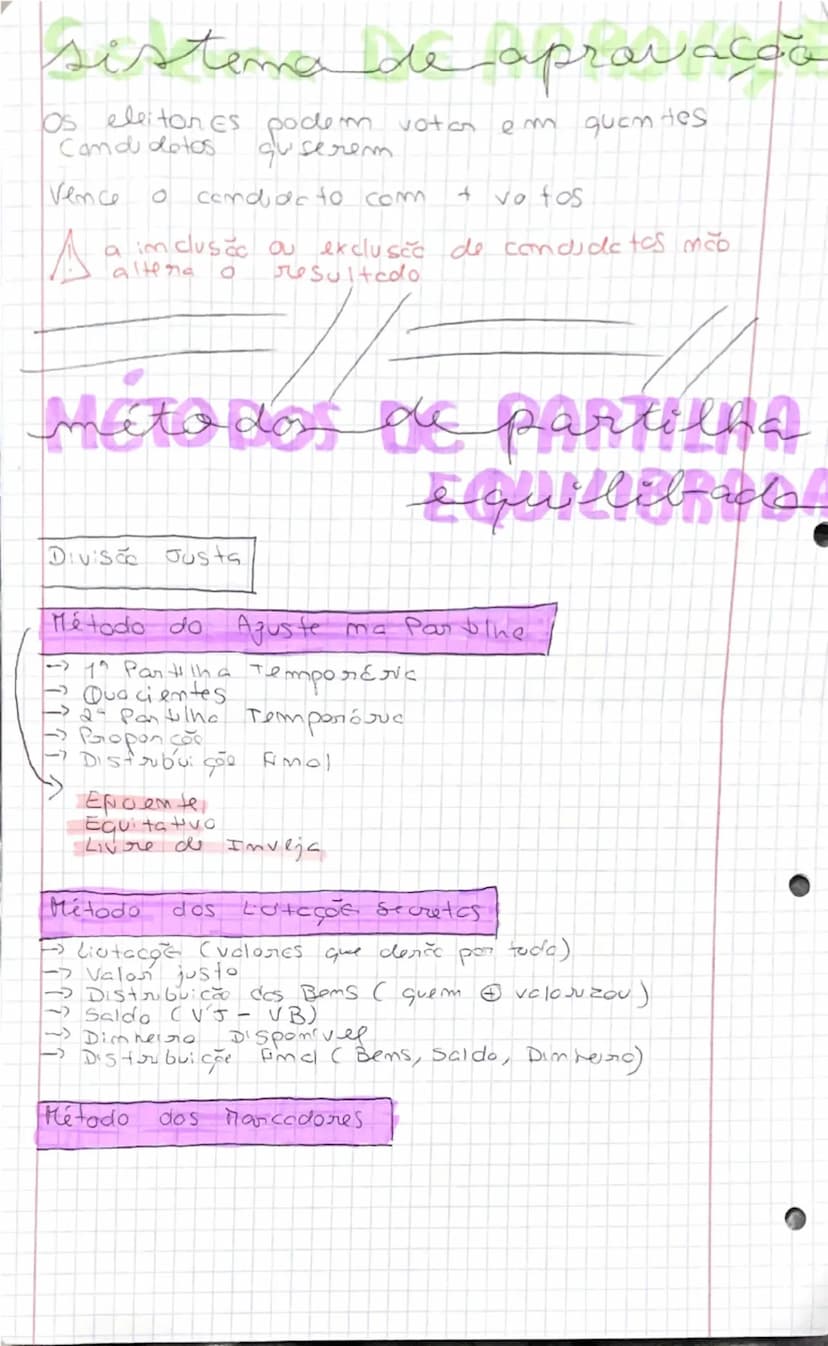 Sistema de aprovação
Os eleitores podem votar em quantos
candidatos quserem
Vence o candidacto com + votos
⚠ a inclusão ou exclusão de candidatos não
altera o resultado
métodos de partilha
equilibrada
Divisão Justa
Método do Ajuste na Partilha
→ 1ª Partilha Temporária
→ Quocientes
→ 2ª Partilha Temporária
→ Proporção
→ Distribuição Final
Eficiente
Equitativo
Livre de Inveja
Método das Licitações Secretas
→ Licitação (valores que darão por tudo)
→ Valor justo
→ Distribuição dos Bens (quem ⊕ valorizou)
→ Saldo (VJ - VB)
→ Dinheiro Disponível
→ Distribuição Final (Bens, Saldo, Dinheiro)
Método dos Marcadores